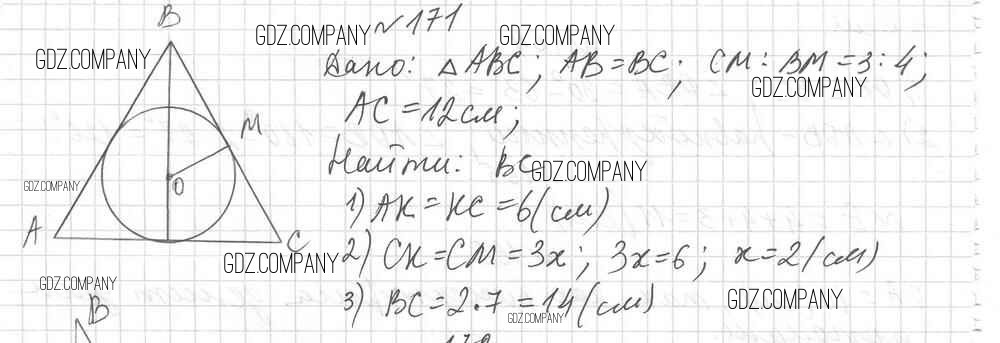 B
№ 171
GDZ.COMPANY GDZ.COMPANY
GDZ.COMPANY
Дано: △ABC; AB=BC; CM:BM=3:4;
GDZ.COMPANY
AC=12см;
M
Найти: BC
GDZ.COMPANY
O
GDZ.COMPANY
1) AK=KC=6(см)
A
C
GDZ.COMPANY
2) CK=CM=3x; 3x=6; x=2(см)
GDZ.COMPANY
3) BC=2·7=14(см)
GDZ.COMPANY
GDZ.COMPANY
B